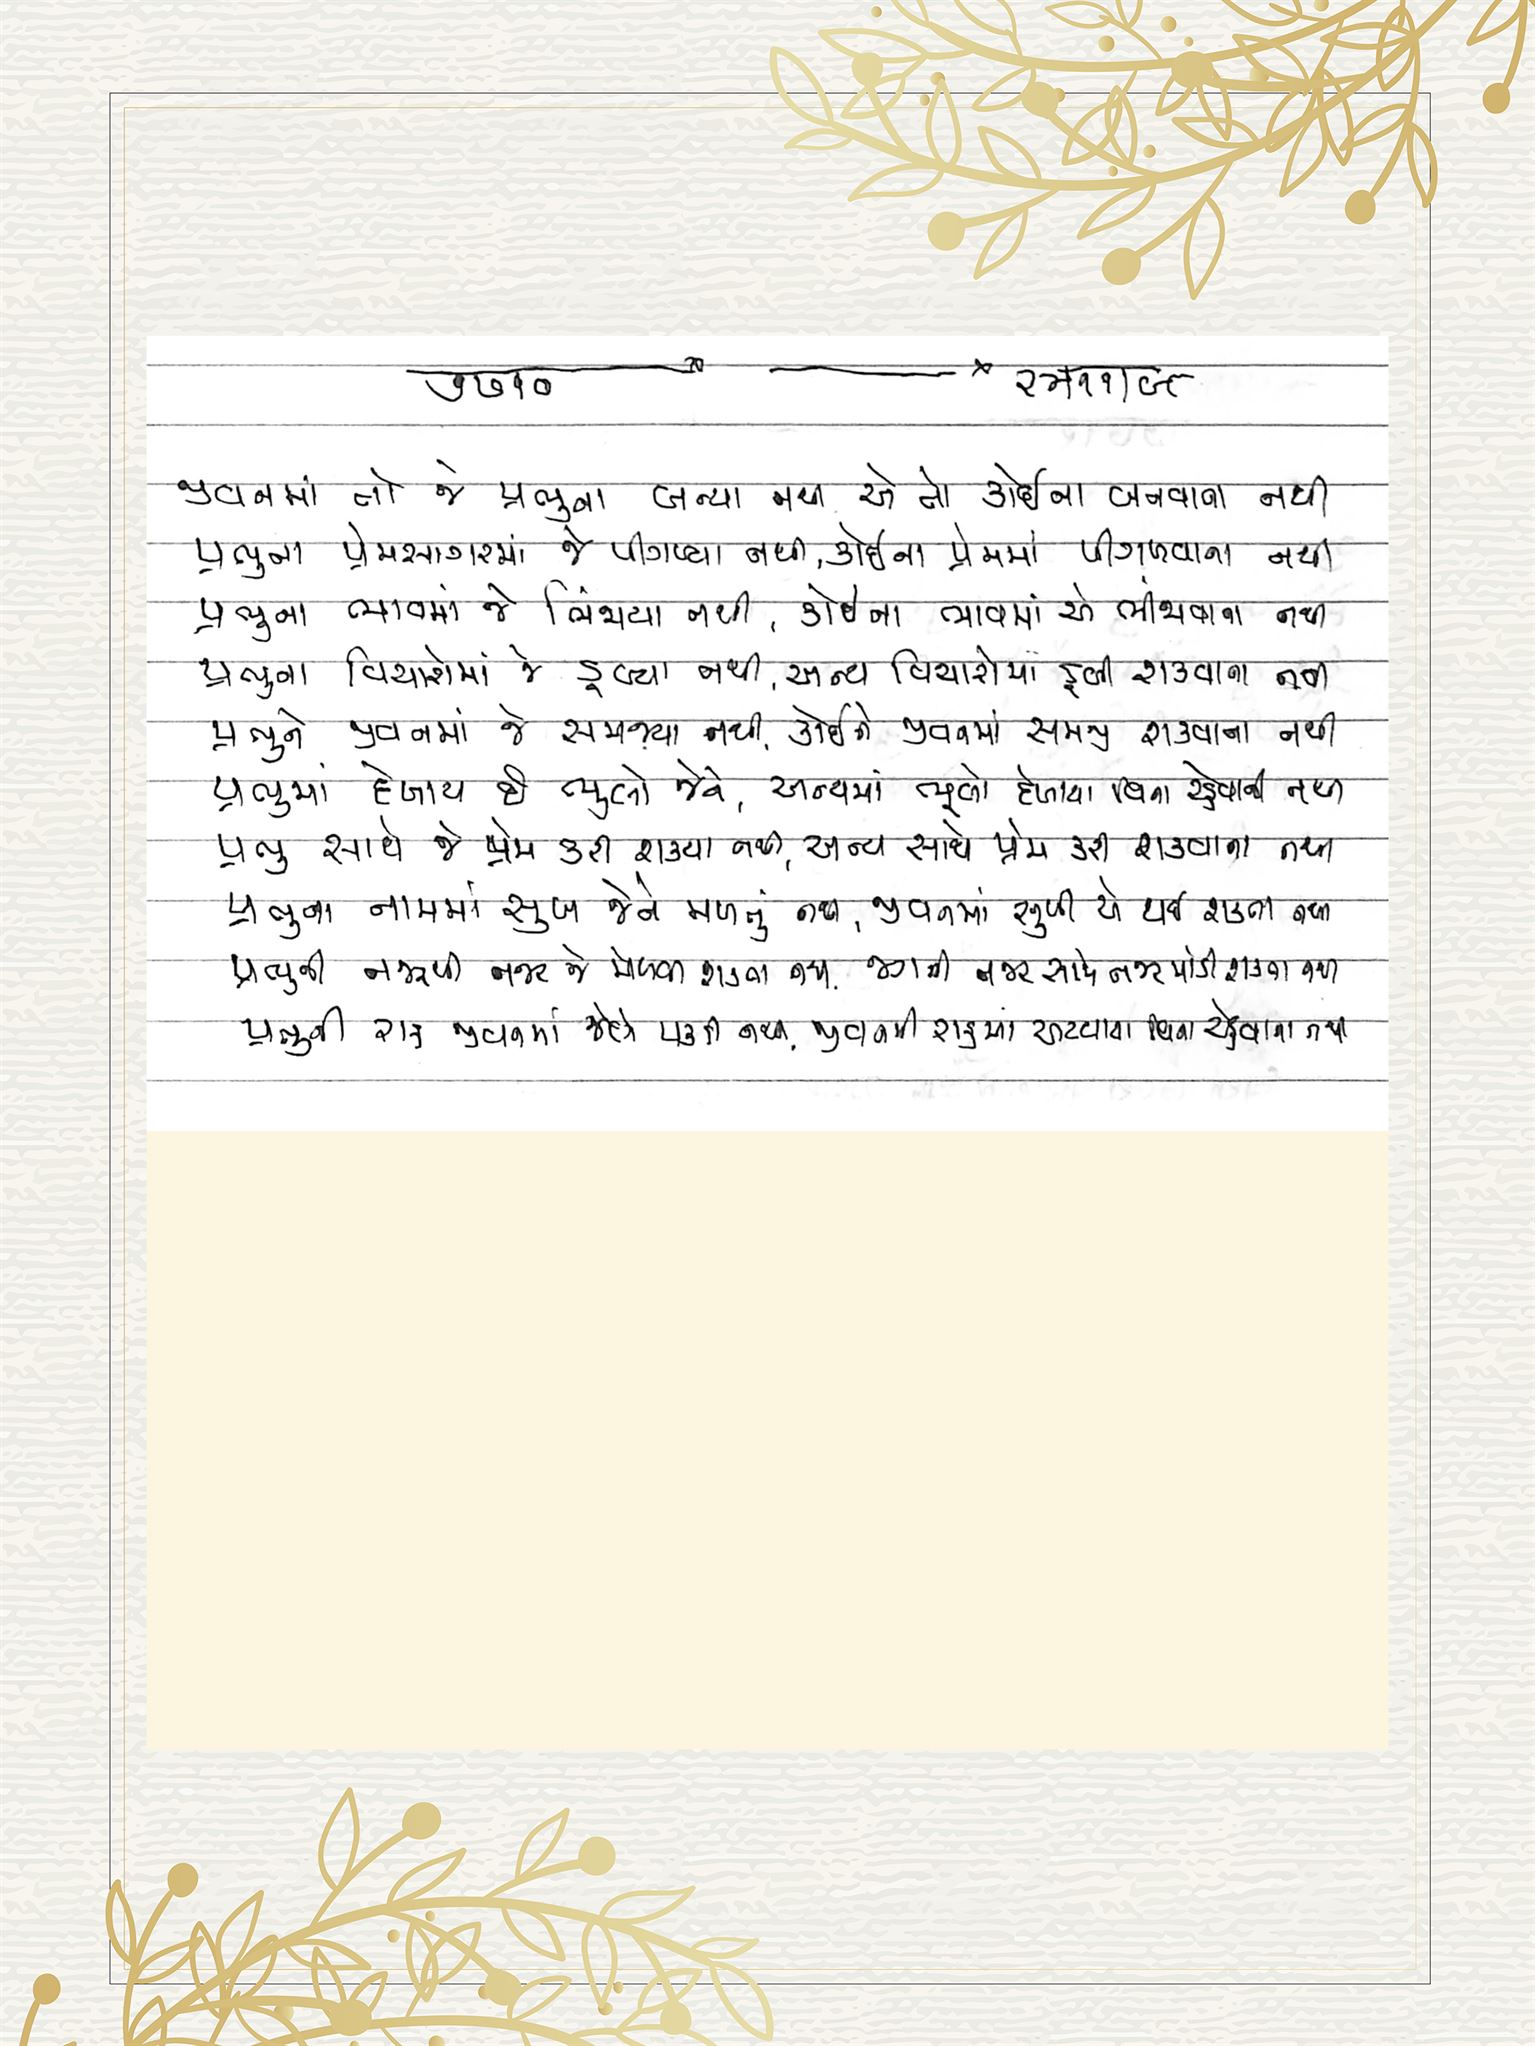 ૭૭૧૦
જીવનમાં તો જે પ્રભુના બન્યા નથી એ તો કોઈના બનવાના નથી
પ્રભુના પ્રેમસાગરમાં જે પીગળ્યા નથી, કોઈના પ્રેમમાં પીગળવાના નથી
પ્રભુના ભાવમાં જે ભિંજાયા નથી, કોઈના ભાવમાં એ ભીંજાવાના નથી
પ્રભુના વિચારોમાં જે ડૂબ્યા નથી, અન્ય વિચારોમાં ડૂબી શકવાના નથી
પ્રભુને જીવનમાં જે સમજ્યા નથી, કોઈને જીવનમાં સમજી શકવાના નથી
પ્રભુમાં દેખાય છે ભુલો જેને, અન્યમાં ભૂલો દેખાયા વિના રહેવાની નથી
પ્રભુ સાથે જે પ્રેમ કરી શક્યા નથી, અન્ય સાથે પ્રેમ કરી શકવાના નથી
પ્રભુના નામમાં સુખ જેને મળતું નથી, જીવનમાં સુખી એ થઈ શકતા નથી
પ્રભુની નજરથી નજર જે મેળવી શકતા નથી, જગની નજર સાથે નજર માંડી શકતા નથી
પ્રભુની રાહ જીવનમાં જેણે પકડી નથી, જીવનની રાહમાં અટવાયા વિના રહેવાના નથી